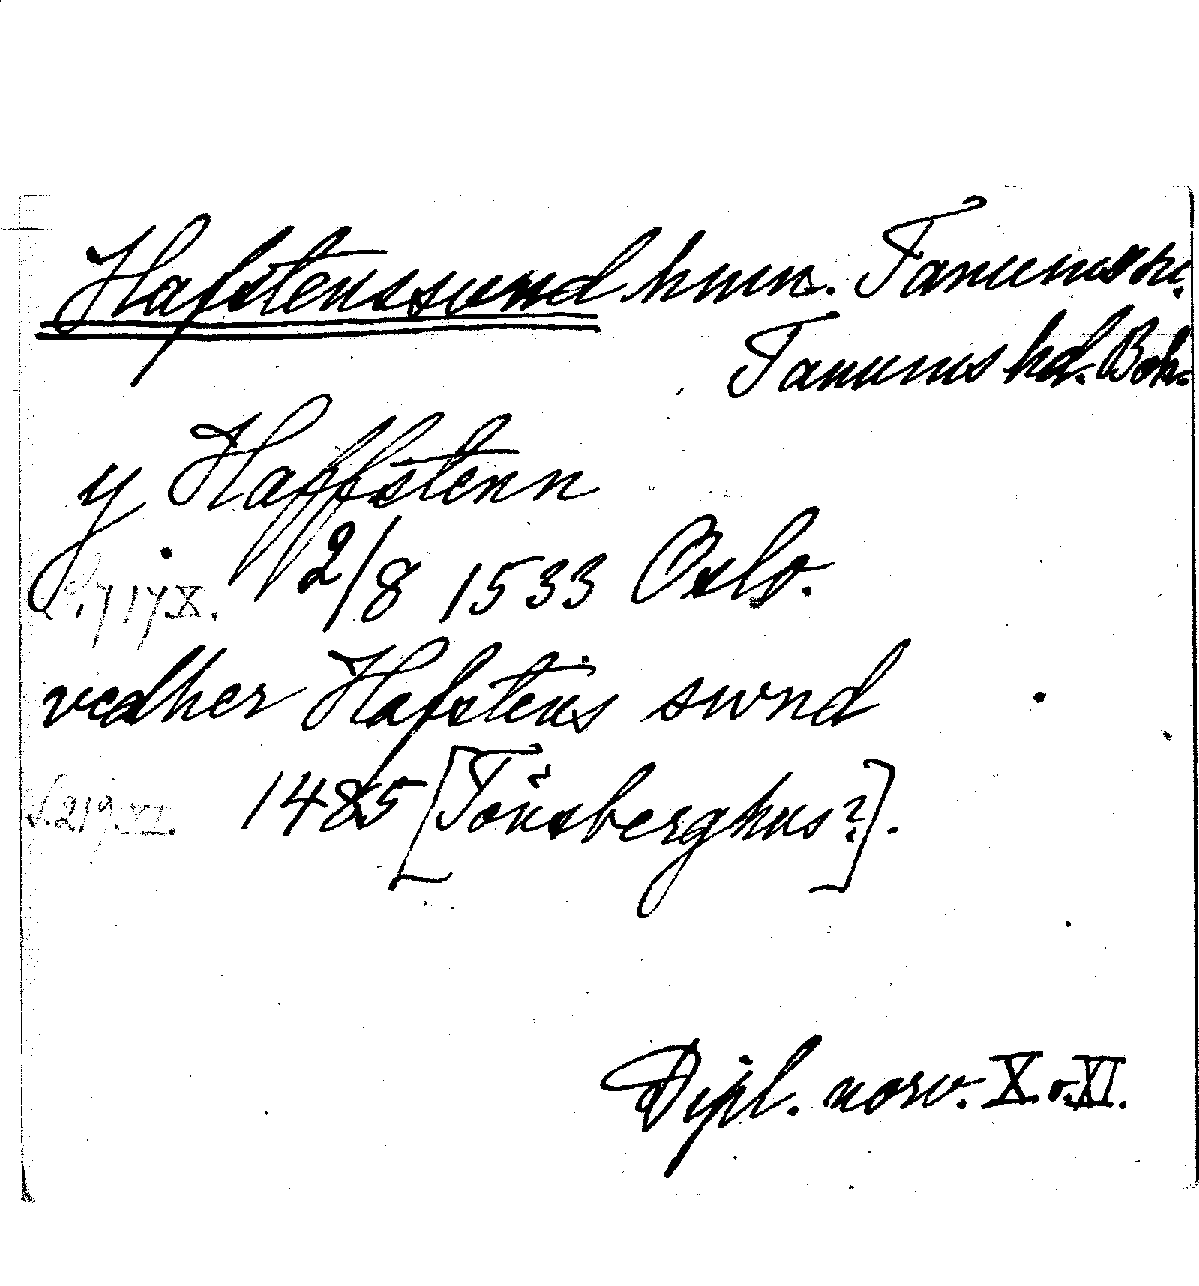 Hafstenssund hmn. Tanums sn.
Tanums hd. Boh.
y Haffstenn
2/8 1533 Oslo.
S. 717 X.
vedher Hafstens swnd
1485 [Tönsberghus?].
S. 219. XI.
Dipl. norv. X. o. XI.